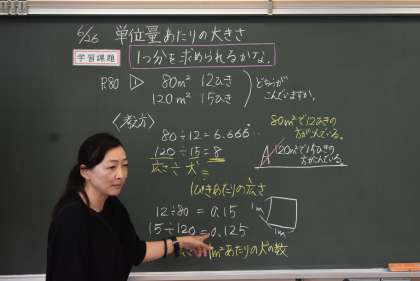 6/26 単位量あたりの大きさ
学習課題 1つ分を求められるかな。
P.80 ① 80m² 12ひき
120m² 15ひき
どちらが
こんでいますか。
〈考え方〉
80÷12=6.666
120÷15=8
広さ÷犬=
1ぴきあたりの広さ
12÷80=0.15
15÷120=0.125
1m²あたりの犬の数
1m
1m
80m²で12ひきの
方がこんでいる。
A 120m²で15ひきの
方がこんでいる。